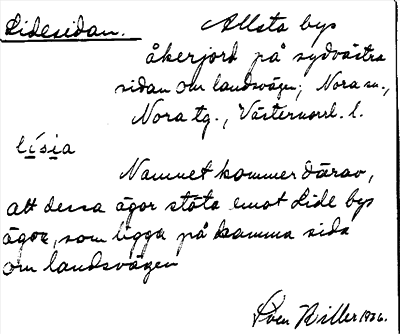 Lidesidan. Allsta bys
åkerjord på sydvästra
sidan om landsvägen; Nora sn.,
Nora tg., Västernorrl. l.
lísia
Namnet kommer därav,
att dessa ägor stöta emot Lide bys
ägor, som ligga på samma sida
om landsvägen
Sven Biller 1936.